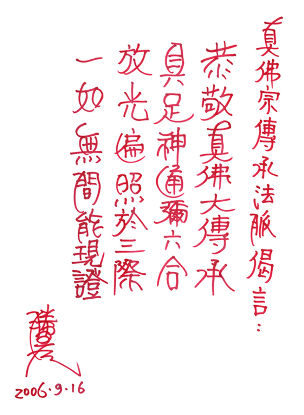 真佛宗傳承法脈偈言：
恭敬真佛大傳承
具足神通彌六合
放光遍照於三際
一如無間能現證
2006.9.16